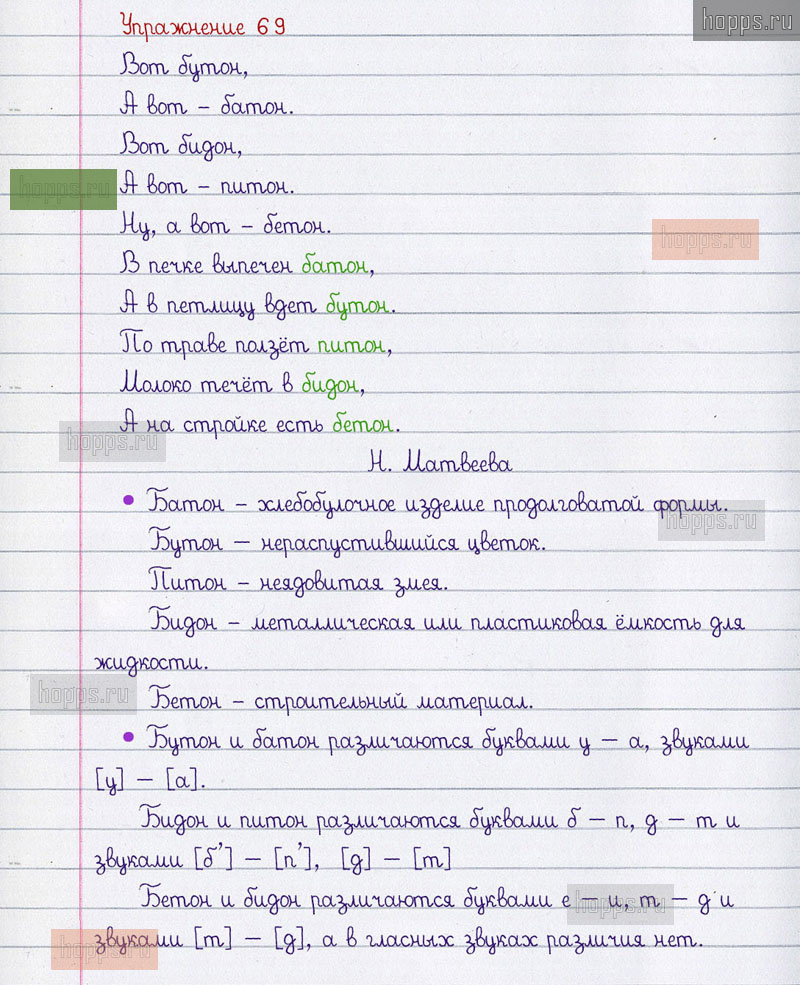 hopps.ru
Упражнение 69
Вот бутон,
А вот – батон.
Вот бидон,
hopps.ru
А вот – питон.
Ну, а вот – бетон.
hopps.ru
В печке выпечен батон,
А в петлицу вдет бутон.
По траве ползёт питон,
Молоко течёт в бидон,
А на стройке есть бетон.
hopps.ru
Н. Матвеева
• Батон – хлебобулочное изделие продолговатой формы.
hopps.ru
Бутон – нераспустившийся цветок.
Питон – неядовитая змея.
Бидон – металлическая или пластиковая ёмкость для
жидкости.
hopps.ru
Бетон – строительный материал.
• Бутон и батон различаются буквами у – а, звуками
[у] – [а].
Бидон и питон различаются буквами б – п, д – т и
звуками [б’] – [п’], [д] – [т]
Бетон и бидон различаются буквами е – и, т – д и
hopps.ru
звуками [т] – [д], а в гласных звуках различия нет.
hopps.ru